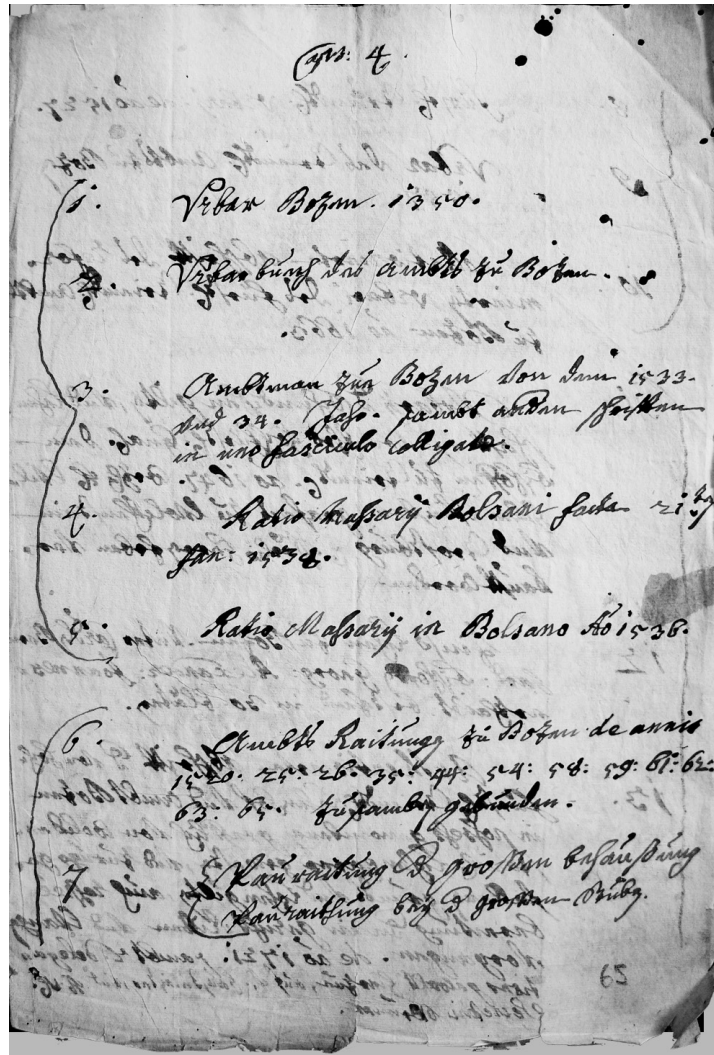 Caps: 4.
1. Urbar Bozen. 1350.
2. Urbar buech des Ambts zu Bozen.
3. Ambtman zu Bozen von dem 1533.
und 34. Jahr. sambt andern schrifften
in uno fasciculo colligato.
4. Ratio Massarÿ Bolsani facta 21
Jan: 1538.
5. Ratio Massarÿ in Bolsano Ao 1536.
6. Ambts Raitung zu Bozen de annis
1520. 25: 26. 35: 44: 54: 58: 59: 61: 62:
63: 65. zusamben gebunden.
7 Pauraitung d großen behaußung
Pauraithung beÿ d großen Stube.
65